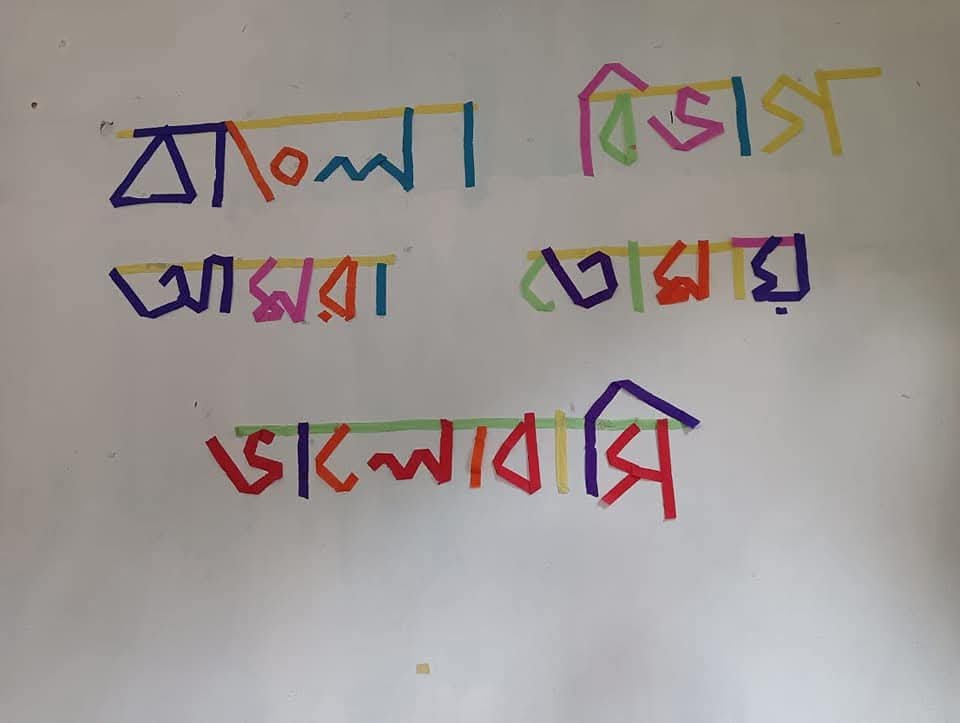 বাংলা বিভাগ
আমরা তোমায়
ভালোবাসি